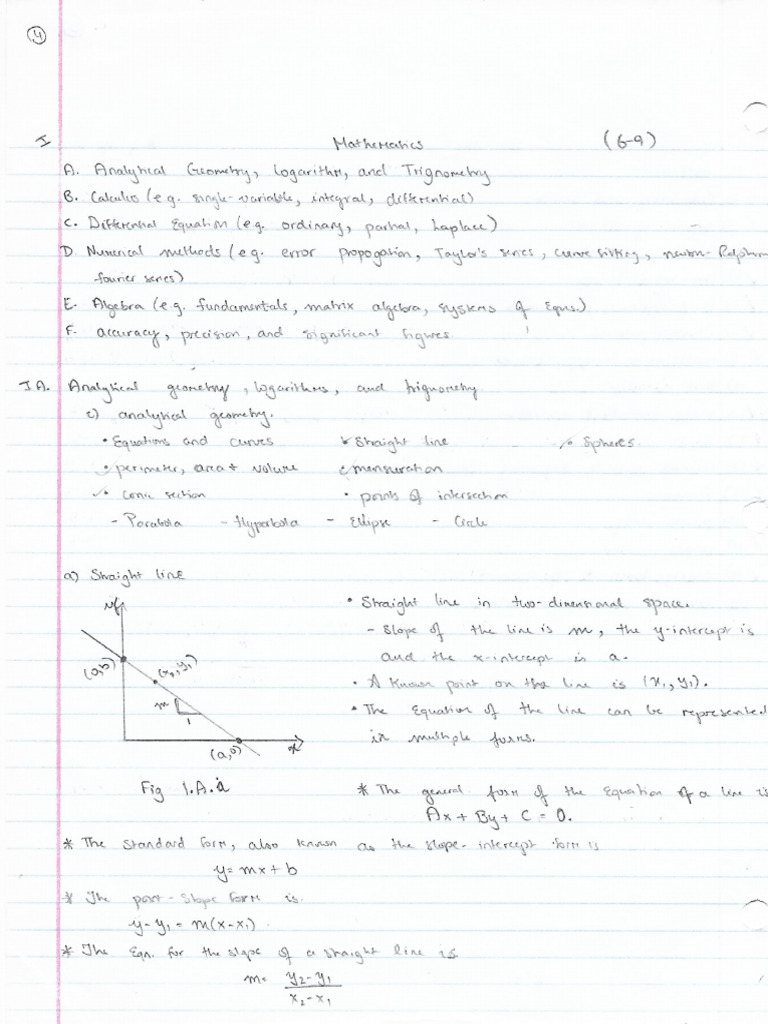 4
I Mathematics (6-9)
A. Analytical Geometry, Logarithm, and Trignometry
B. Calculus (e.g. single-variable, integral, differential)
C. Differential Equation (e.g. ordinary, partial, Laplace)
D. Numerical methods (e.g. error propogation, Taylor's series, curve fitting, newton-
fourier series)
E. Algebra (e.g. fundamentals, matrix algebra, systems of Equs.)
F. accuracy, precision, and significant figures
IA. Analytical geometry, logarithms, and trignometry
analytical geometry.
• Equations and curves Straight line Spheres
perimeter, area + volume mensuration
conic section • points of intersection
- Parabola - Hyperbola - Ellipse - Circle
a) Straight line
• Straight line in two-dimensional space.
- Slope of the line is m, the y-intercept is
and the x-intercept is a.
• A known point on the line is (x₁, y₁).
• The Equation of the line can be represented
in multiple forms.
(0,b) (x₁,y₁)
m
1
(a,0) x
Fig 1.A.i
* The general form of the Equation of a line is
Ax + By + C = 0.
* The standard form, also known as the slope-intercept form is
y = mx + b
* The point-slope form is.
y-y₁ = m(x-x₁).
* The Eqn. for the slope of a straight line is
m = y₂-y₁
x₂-x₁